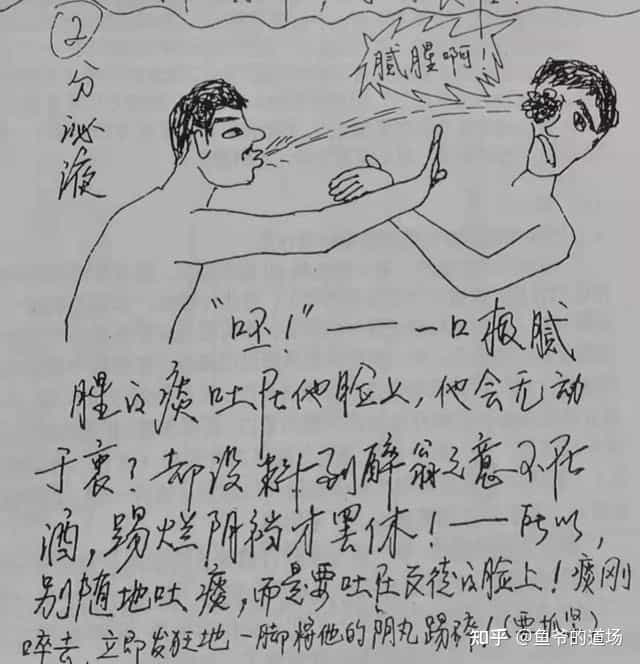 ② 分泌液
腻腥啊！
“呸！”——一口极腻
腥的痰吐在他脸上，他会无动
于衷？却没料到醉翁之意不在
酒，踢烂阴裆才罢休！——所以，
别随地吐痰，而是要吐在反德的脸上！痰刚
啐去，立即发狂地一脚将他的阴丸踢碎！（要抓紧）
知乎 @鱼爷的道场